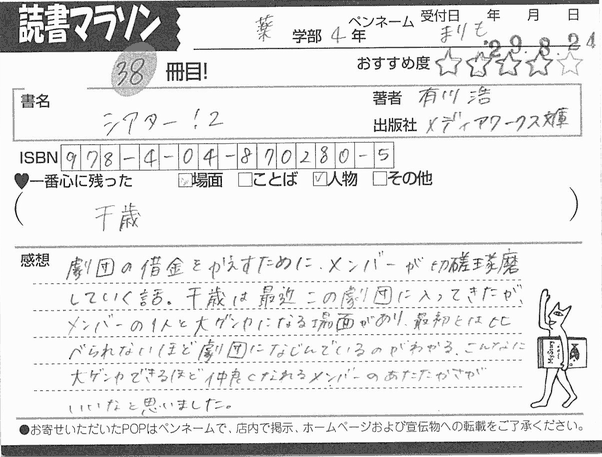 読書マラソン
薬 学部 4 年 ペンネーム まりも 受付日 年 月 日
'29.8.24
38 冊目! おすすめ度 ☆☆☆☆☆
書名 シアター!2
著者 有川 浩
出版社 メディアワークス文庫
ISBN 978-4-04-870280-5
♥一番心に残った □場面 □ことば ☑人物 □その他
( 千歳 )
感想 劇団の借金をかえすために、メンバーが切磋琢磨
していく話。千歳は最近この劇団に入ってきたが、
メンバーの1人と大ゲンカになる場面があり、最初とは比
べられないほど劇団になじんでいるのがわかる。こんなに
大ゲンカできるほど仲良くなれるメンバーのあたたかさが
いいなと思いました。
●お寄せいただいたPOPはペンネームで、店内で掲示、ホームページおよび宣伝物への転載をご了承ください。